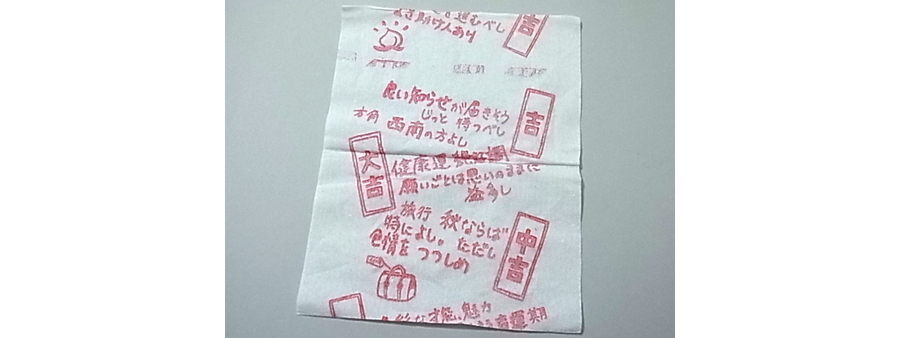 き進むべし
よき助け人あり
吉
良い知らせが届きそう
じっと待つべし
方角 西南の方よし
吉
大吉
健康運
願いごとは思いのままに
益多し
旅行 秋ならば
特によし。ただし
色情をつつしめ
中吉
な才能、魅力
運期